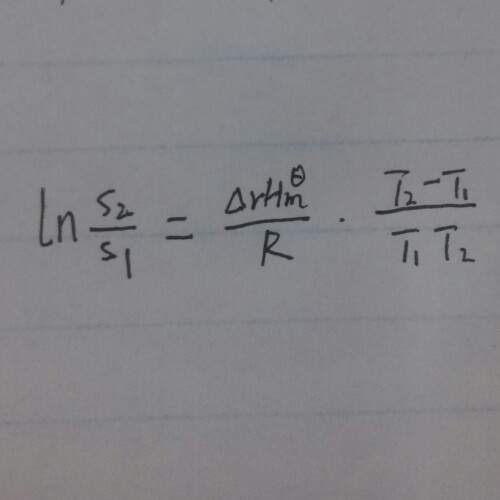 ln S₂/S₁ = ΔrHm^θ/R · T₂-T₁/T₁T₂